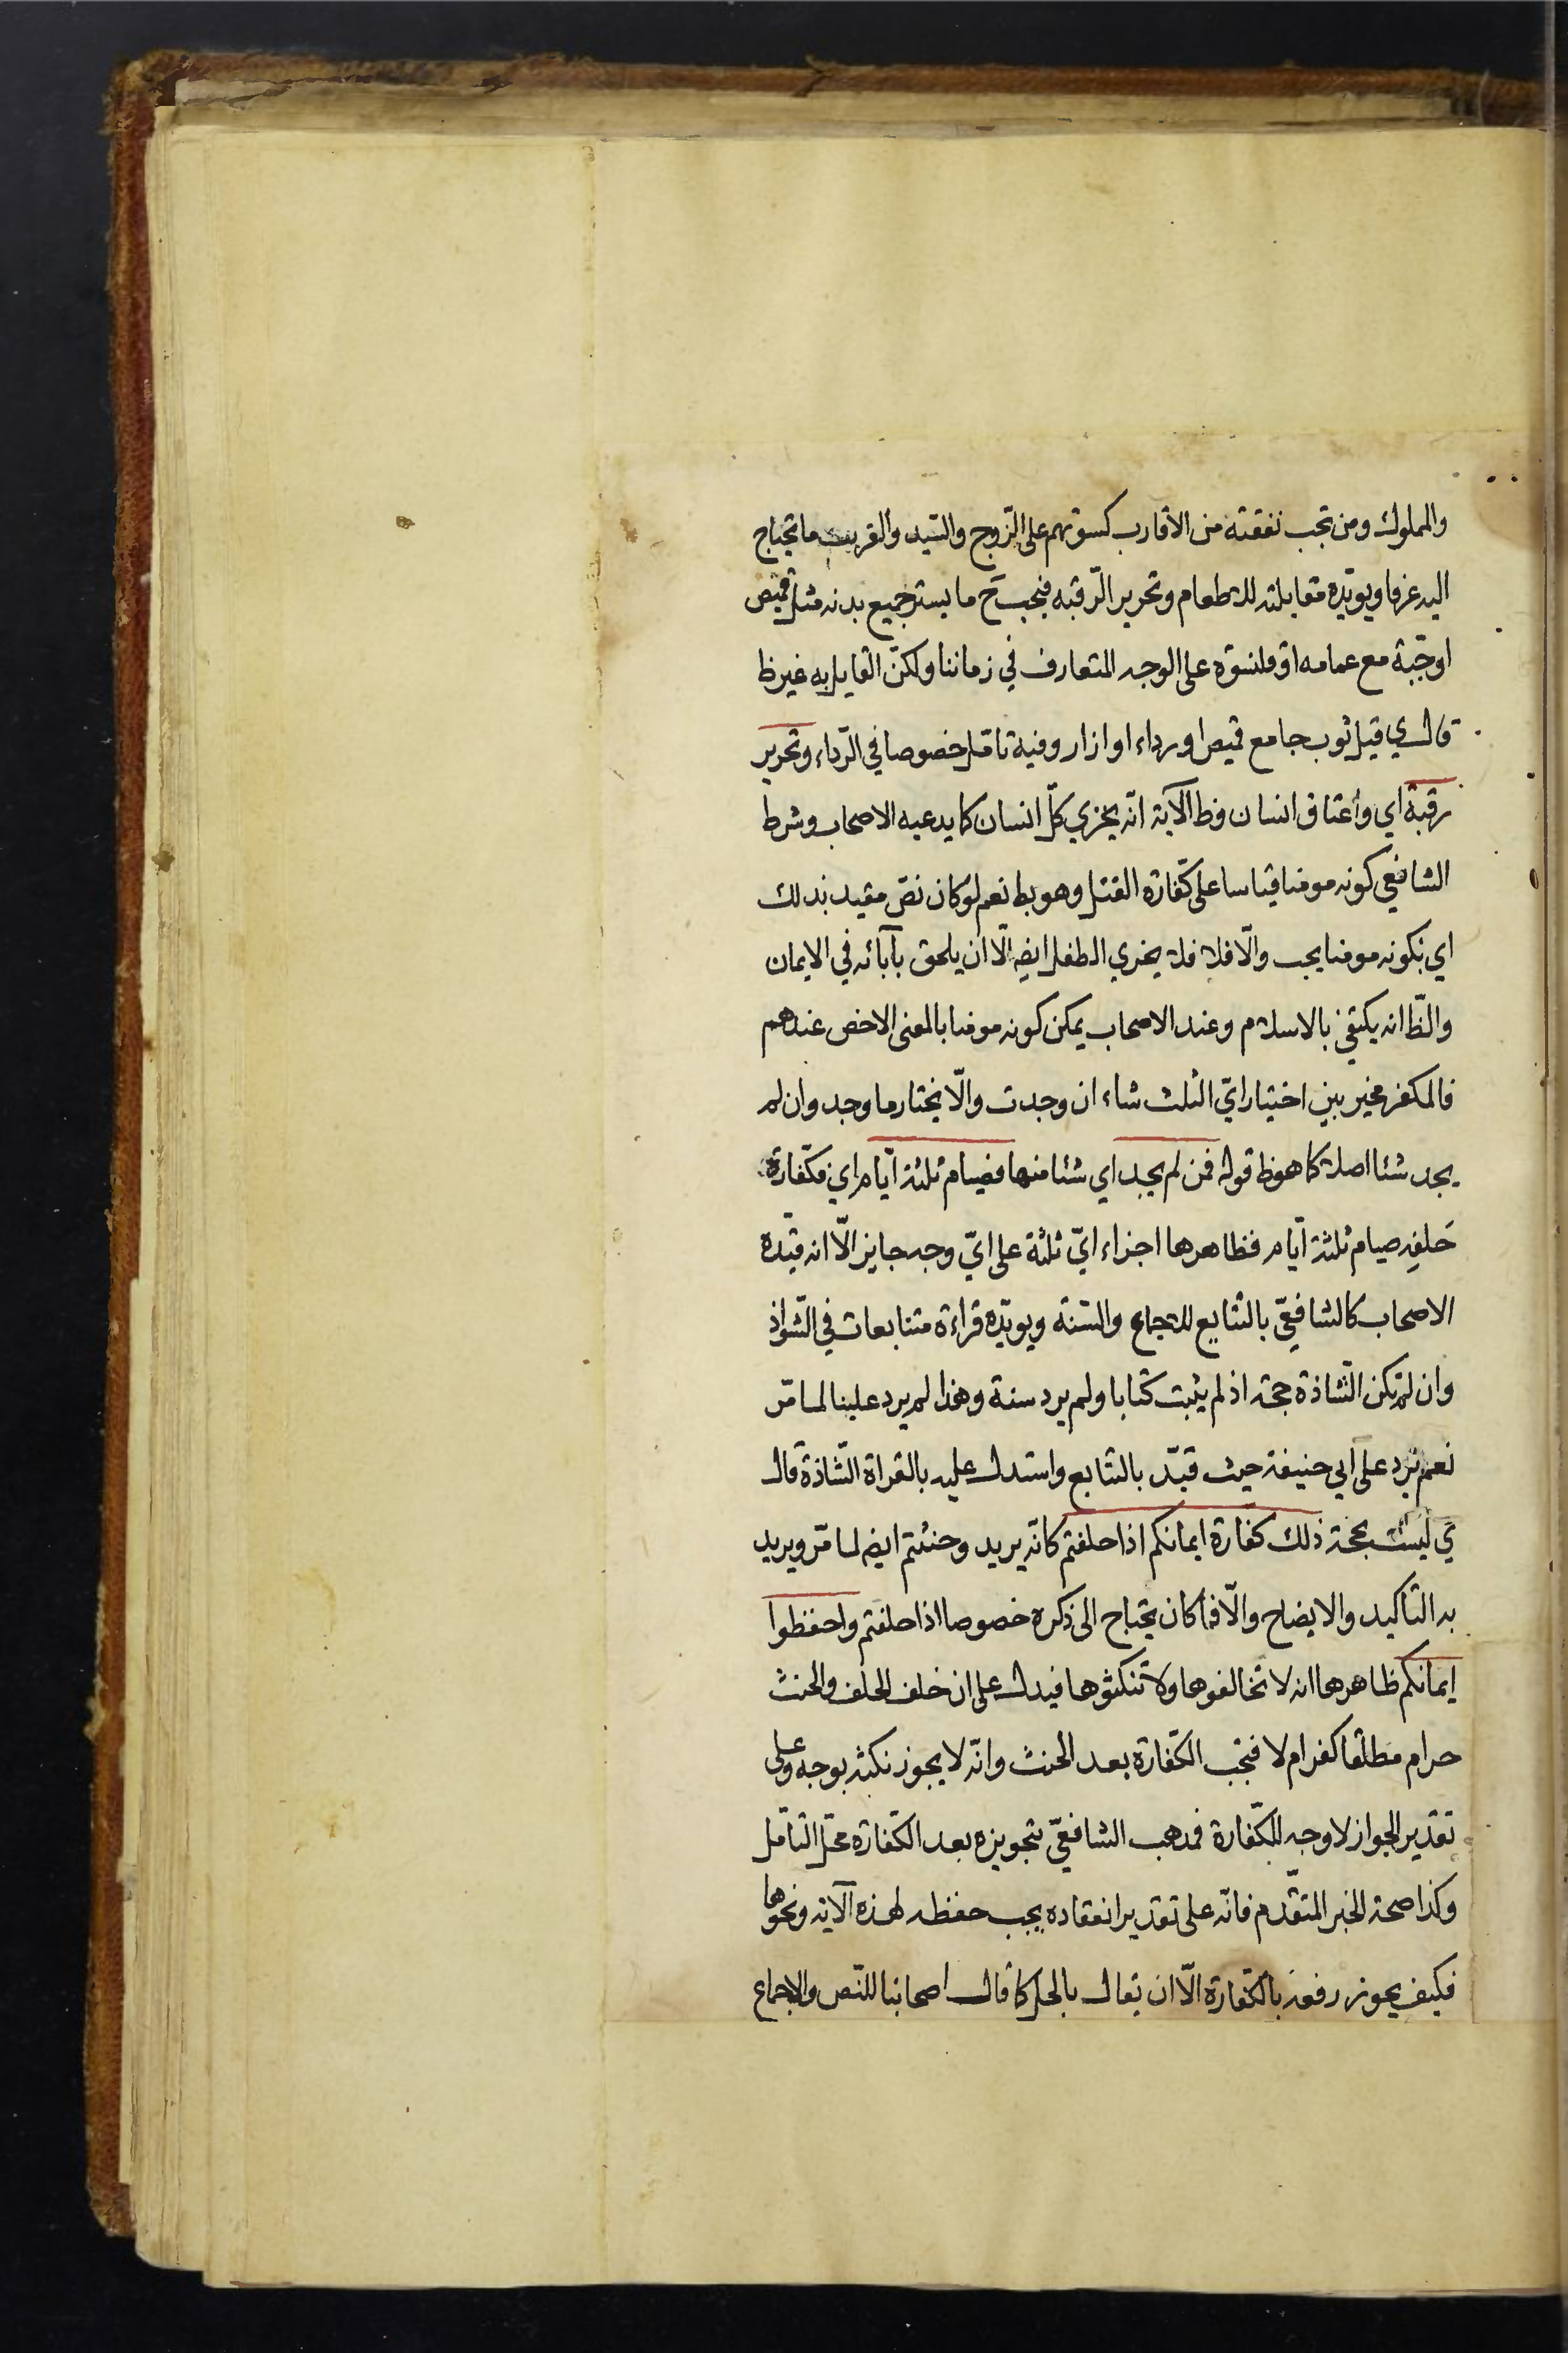 والمملوك ومن تجب نفقته من الاقارب كسوتهم على الزّوج والسّيد والقريب ما تحتاج
اليه عرفا ويويّده مقابلته للاطعام وتحرير الرّقبه فيجب ح ما يستر جميع بدنه مثل قميص
او جبّة مع عمامه او قلنسوه على الوجه المتعارف في زماننا ولكنّ القايل به غير ظ
قال ي قيل ثوب جامع قميص او رداء او ازار وفيه تامّل خصوصا في الرّداء وتحرير
رقبة اي واعتاق انسان وظ الآية انّه يجزي كلّ انسان كما يدعيه الاصحاب وشرط
الشافعي كونه مومنا قياسا على كفّاره القتل وهو بط نعم لو كان نصّ مقيد بذلك
اي بكونه مومنا يجب والّا فلا فلا يجزي الطفل ايضا الّا ان يلحق بآبائه في الايمان
والظّ انه يكتفي بالاسلام وعند الاصحاب يمكن كونه مومنا بالمعنى الاخص عندهم
فالمكفر مخير بين اختيار ايّ الثلث شاء ان وجدت والّا يختار ما وجد وان لم
يجد شئا اصلا كما هو ظ قوله فمن لم يجد اي شئا منها فصيام ثلثة ايّام اي فكفّارة
حَلفِه صيام ثلثة ايّام فظاهرها اجزاء ايّ ثلثة على ايّ وجه جايز الّا انه قيّده
الاصحاب كالشافعيّ بالتتابع للاجماع والسّنة ويويّده قراءة متتابعات في الشّواذ
وان لم تكن الشّاذة حجة اذ لم يثبت كتابا ولم يرد سنة وهذا لم يرد علينا لما مّر
نعم يرد على ابي حنيفة حيث قيّد بالتتابع واستدل عليه بالقراة الشّاذة قال
ي ليست بحجة ذلك كفّارة ايمانكم اذا حلفتم كانّه يريد وحنثتم ايضا لما مّر ويريد
به التاكيد والايضاح والّا فما كان يحتاج الى ذكره خصوصا اذا حلفتم واحفظوا
ايمانكم ظاهرها انه لا تخالفوها ولا تنكثوها فيدل على ان خلف الحلف والحنث
حرام مطلقا كفر ام لا فتجب الكفّارة بعد الحنث وانّه لا يجوز نكثه بوجه وعلى
تقدير الجواز لا وجه للكفّارة فمذهب الشافعيّ بتجويزه بعد الكفّاره محلّ التامّل
وكذا صحة الخبر المتقدّم فانّه على تقدير انعقاده يجب حفظه لهذه الآية ونحوها
فكيف يجوز رفعه بالكفّارة الّا ان يقال بالحل كما قال اصحابنا للنّص والاجماع